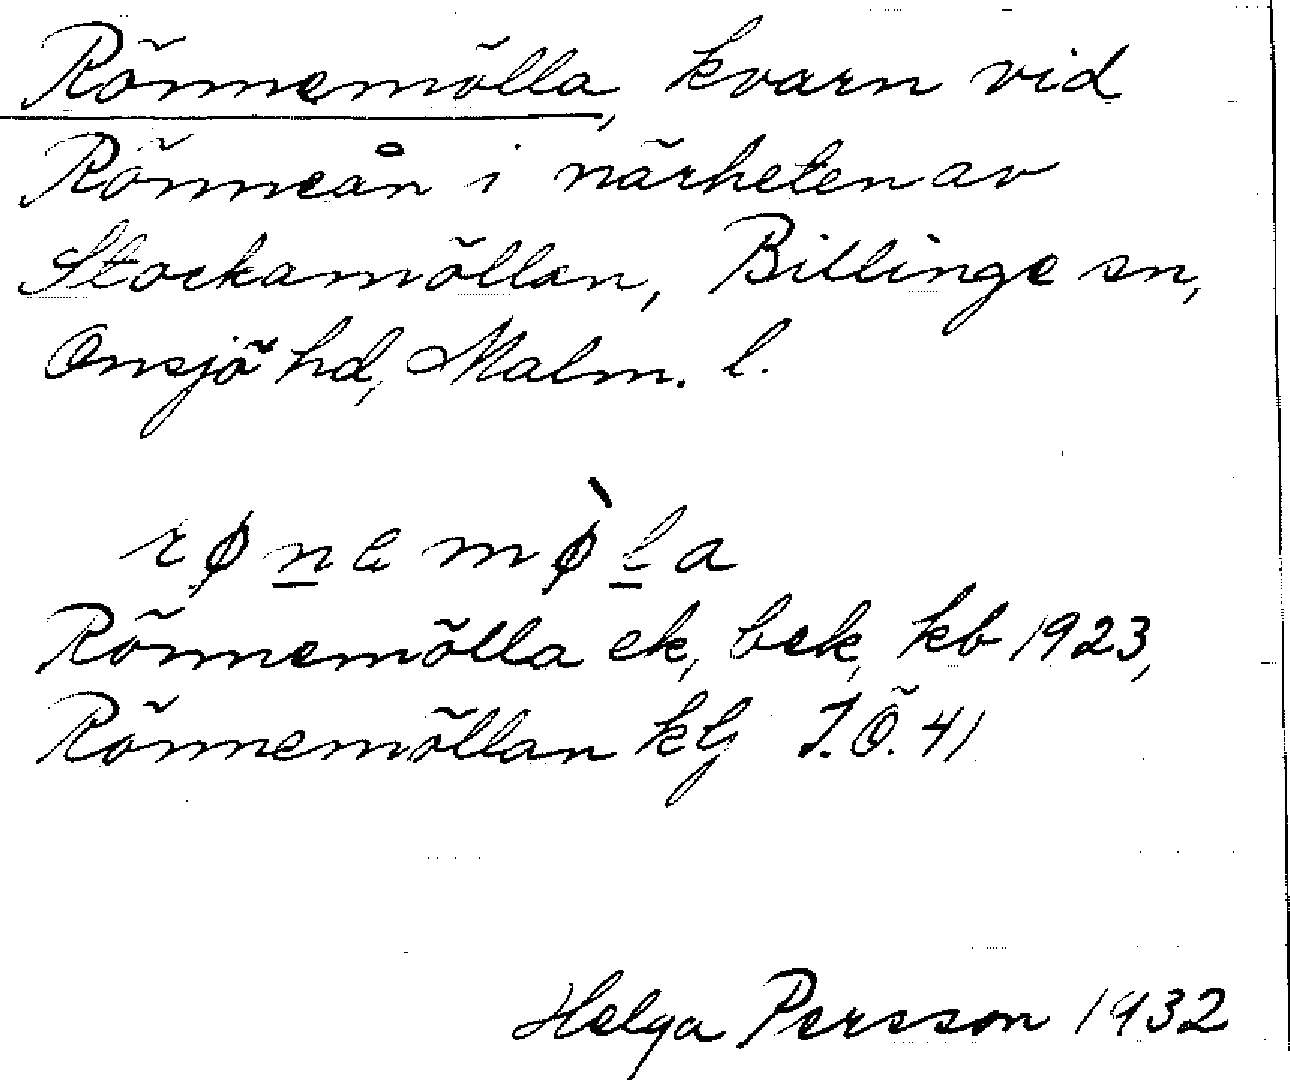 Rönnemölla, kvarn vid
Rönneån i närheten av
Stockamöllan, Billinge sn,
Onsjö hd, Malm. l.
rø̱nemø̀ḻa
Rönnemölla ek, bek, kb 1923,
Rönnemöllan
J.Ö. 41
Helga Persson 1932